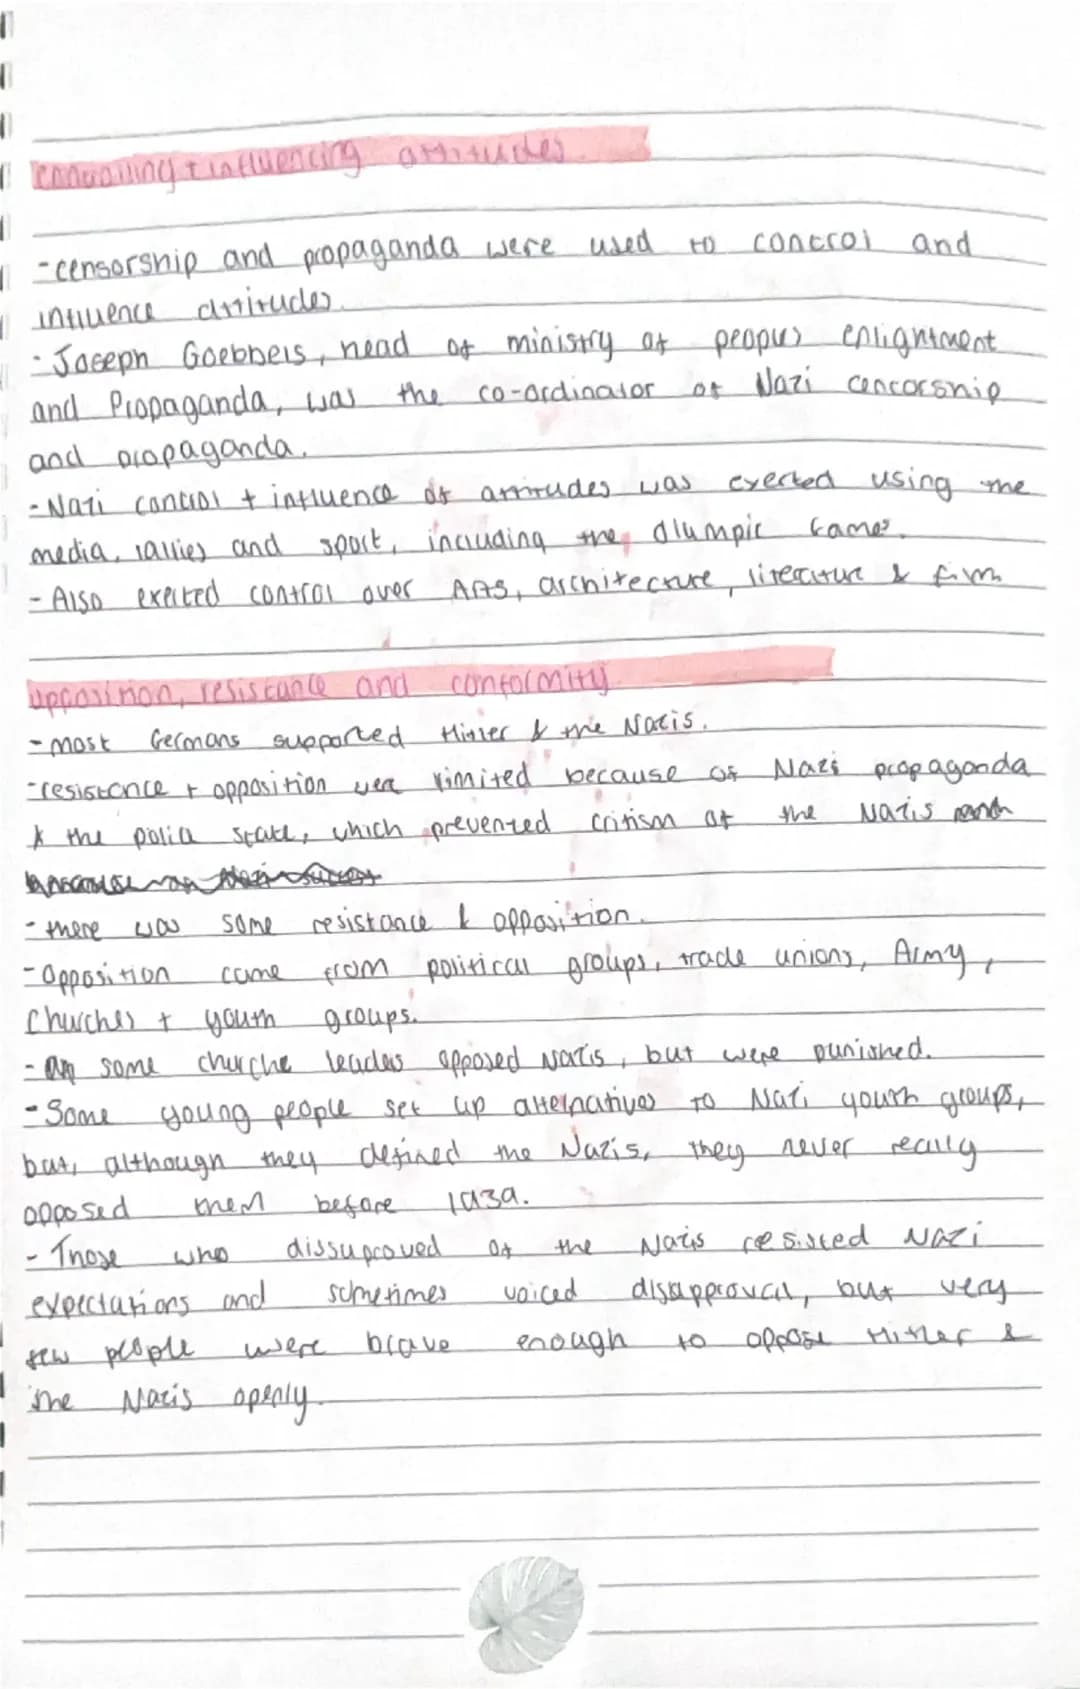 controlling + influencing attitudes.
- censorship and propaganda were used to control and
influence attitudes.
- Joseph Goebbels, head of ministry of peoples enlightment
and Propaganda, was the co-ordinator of Nazi cencorship
and propaganda.
- Nazi control + influence of attitudes was exerted using the
media, rallies and sport, including the Olumpic Games.
- Also exerted control over Arts, architecture, literature & film
opposition, resistance and conformity.
- most Germans supported Hitler & the Nazis.
- resistance + opposition wer limited because of Nazi propaganda
& the police state, which prevented critism of the Nazis
- there was some resistance & opposition.
- Opposition came from political groups, trade unions, Army,
Churches + youth groups.
- some churche leaders opposed Nazis, but were punished.
- Some young people set up alternatives to Nazi youth groups,
but, although they defined the Nazis, they never really
opposed them before 1939.
- Those who dissuproved of the Nazis resisted Nazi
expectations and sometimes voiced disapproval, but very
few people were brave enough to oppose Hitler &
the Nazis openly.